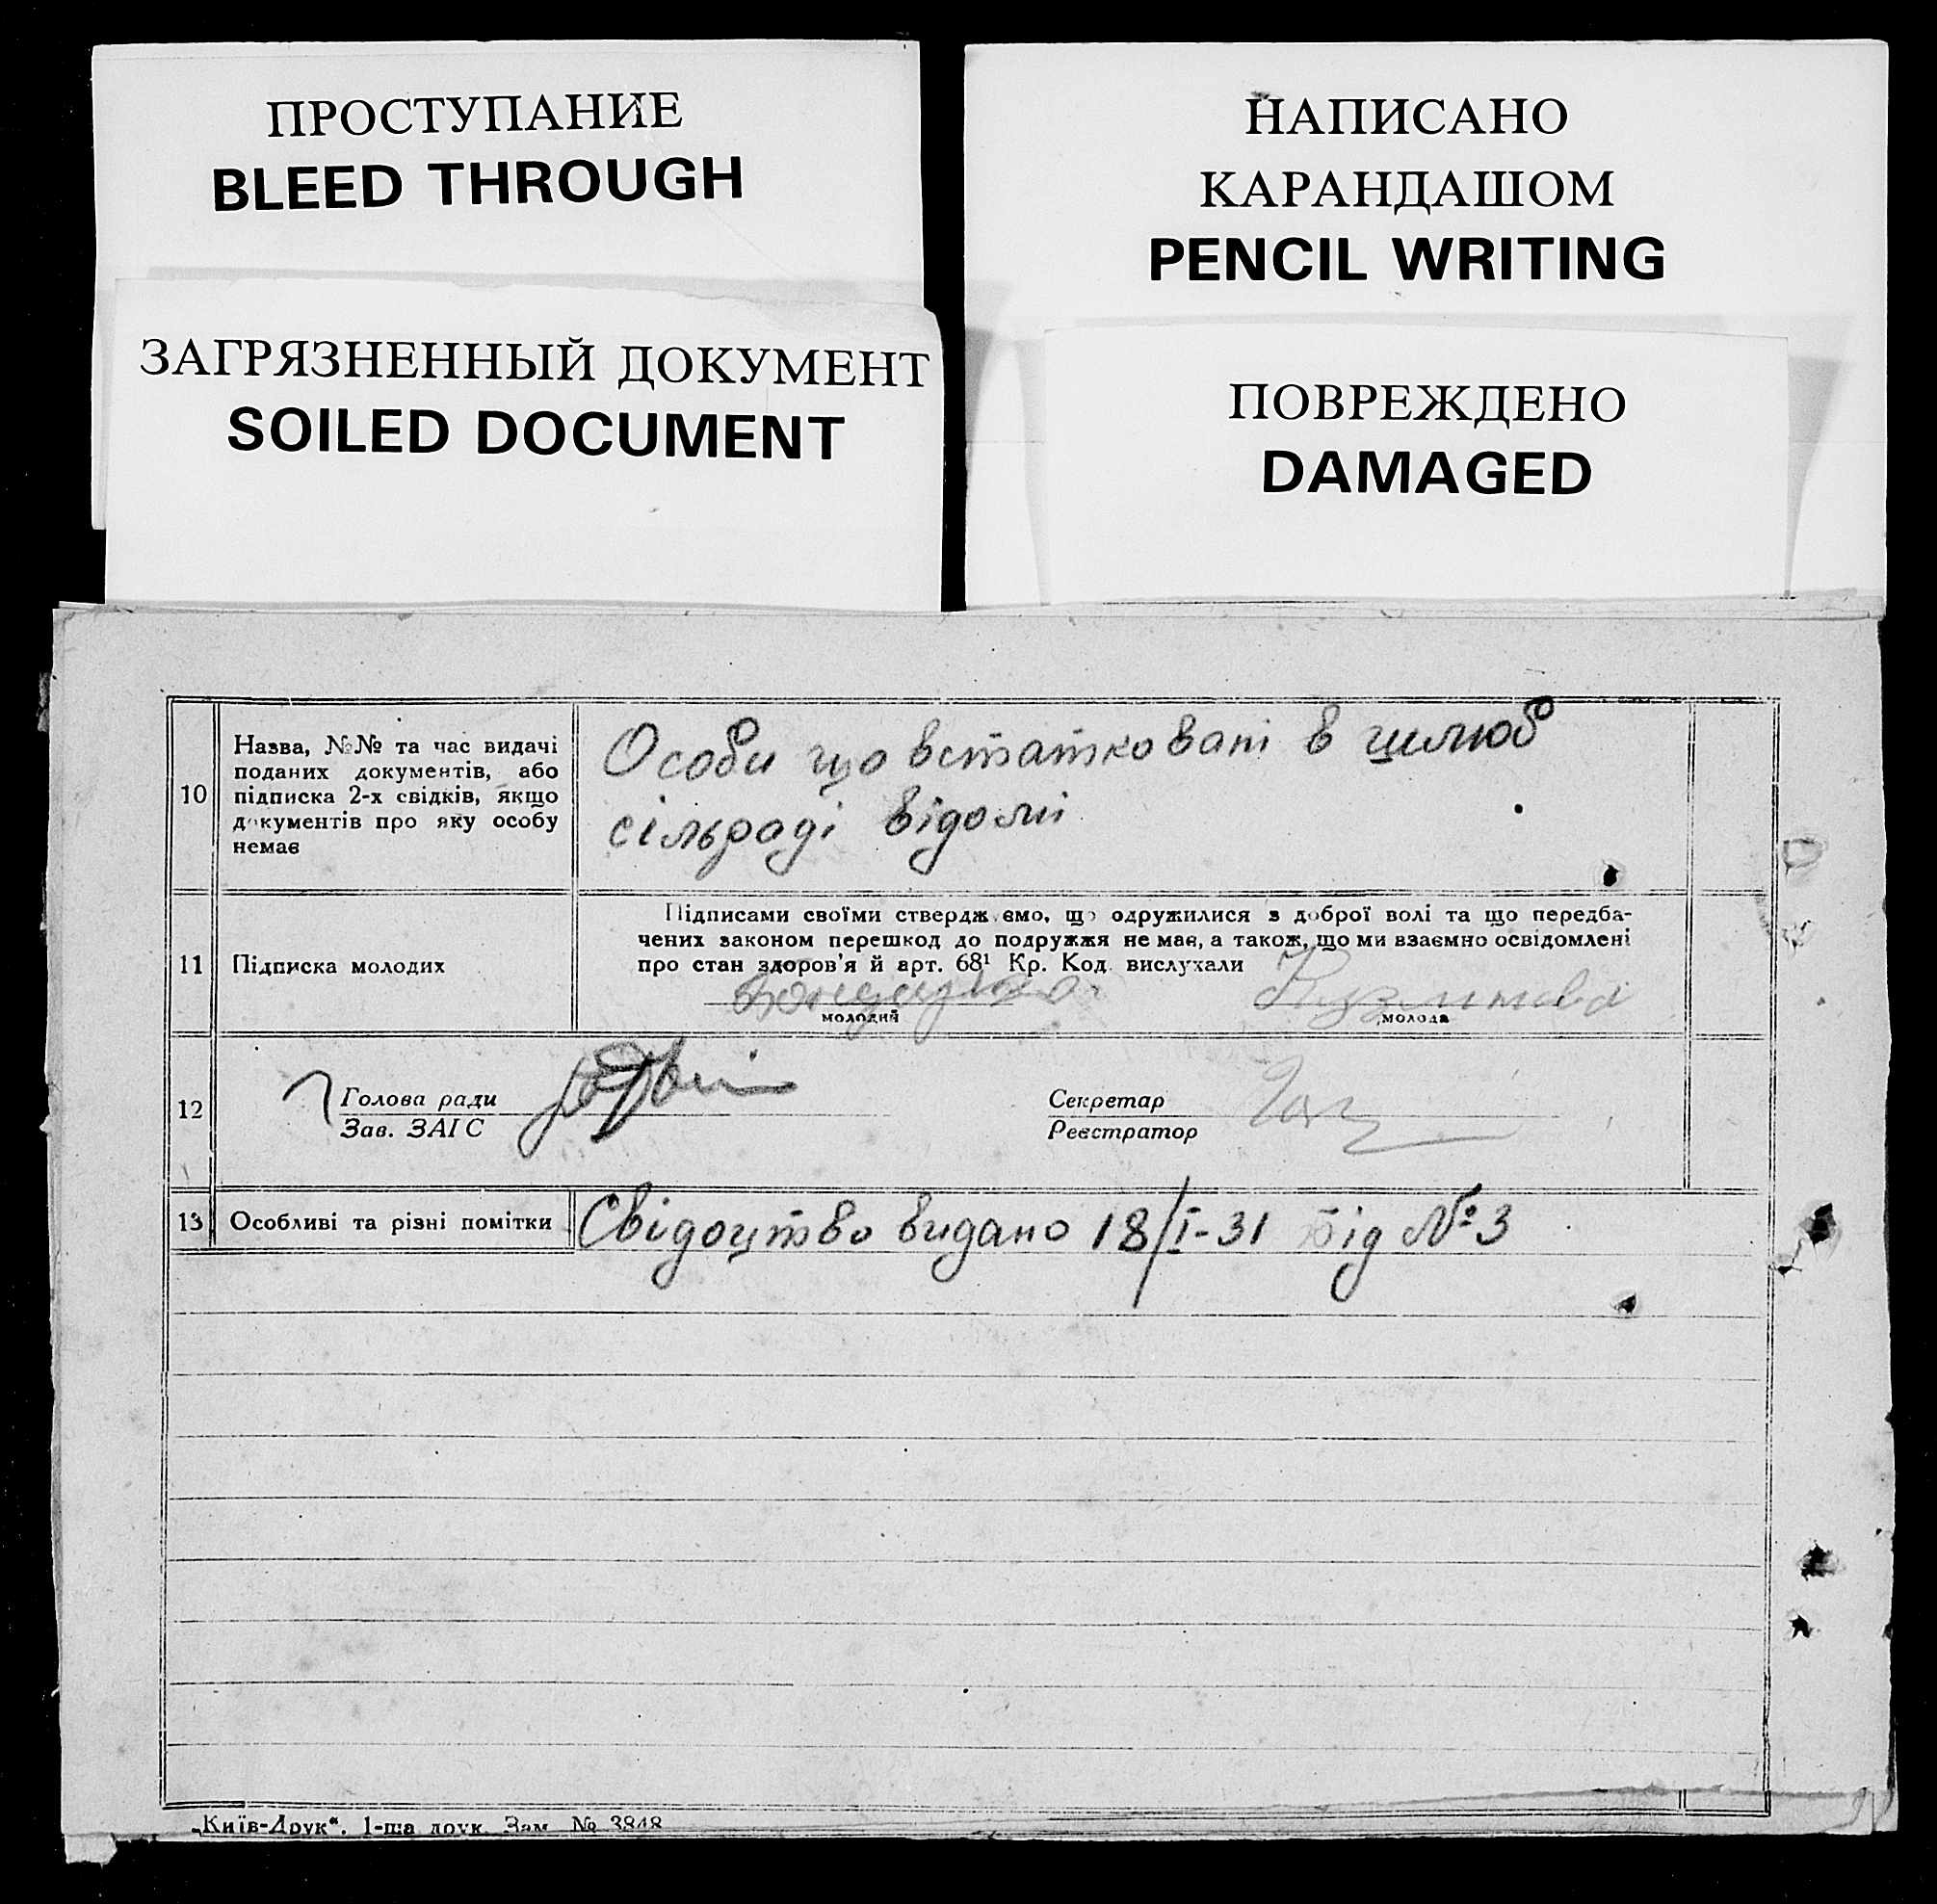 ПРОСТУПАНИЕ
BLEED THROUGH
ЗАГРЯЗНЕННЫЙ ДОКУМЕНТ
SOILED DOCUMENT
НАПИСАНО
КАРАНДАШОМ
PENCIL WRITING
ПОВРЕЖДЕНО
DAMAGED
10
Назва, №№ та час видачі
поданих документів, або
підписка 2-х свідків, якщо
документів про яку особу
немає
Особи що в
сільраді відомі
11
Підписка молодих
Підписами своїми стверджуємо, що одружилися з доброї волі та що передба-
чених законом перешкод до подружжя не має, а також, що ми взаємно освідомлені
про стан здоров'я й арт. 68¹ Кр. Код. вислухали
молодий
молода
12
Голова ради
Зав. ЗАГС
Секретар
Реєстратор
13
Особливі та різні помітки
Свідоцтво видано 18/I-31 від № 3
„Київ-Друк“. 1-ша друк. Зам. № 3848